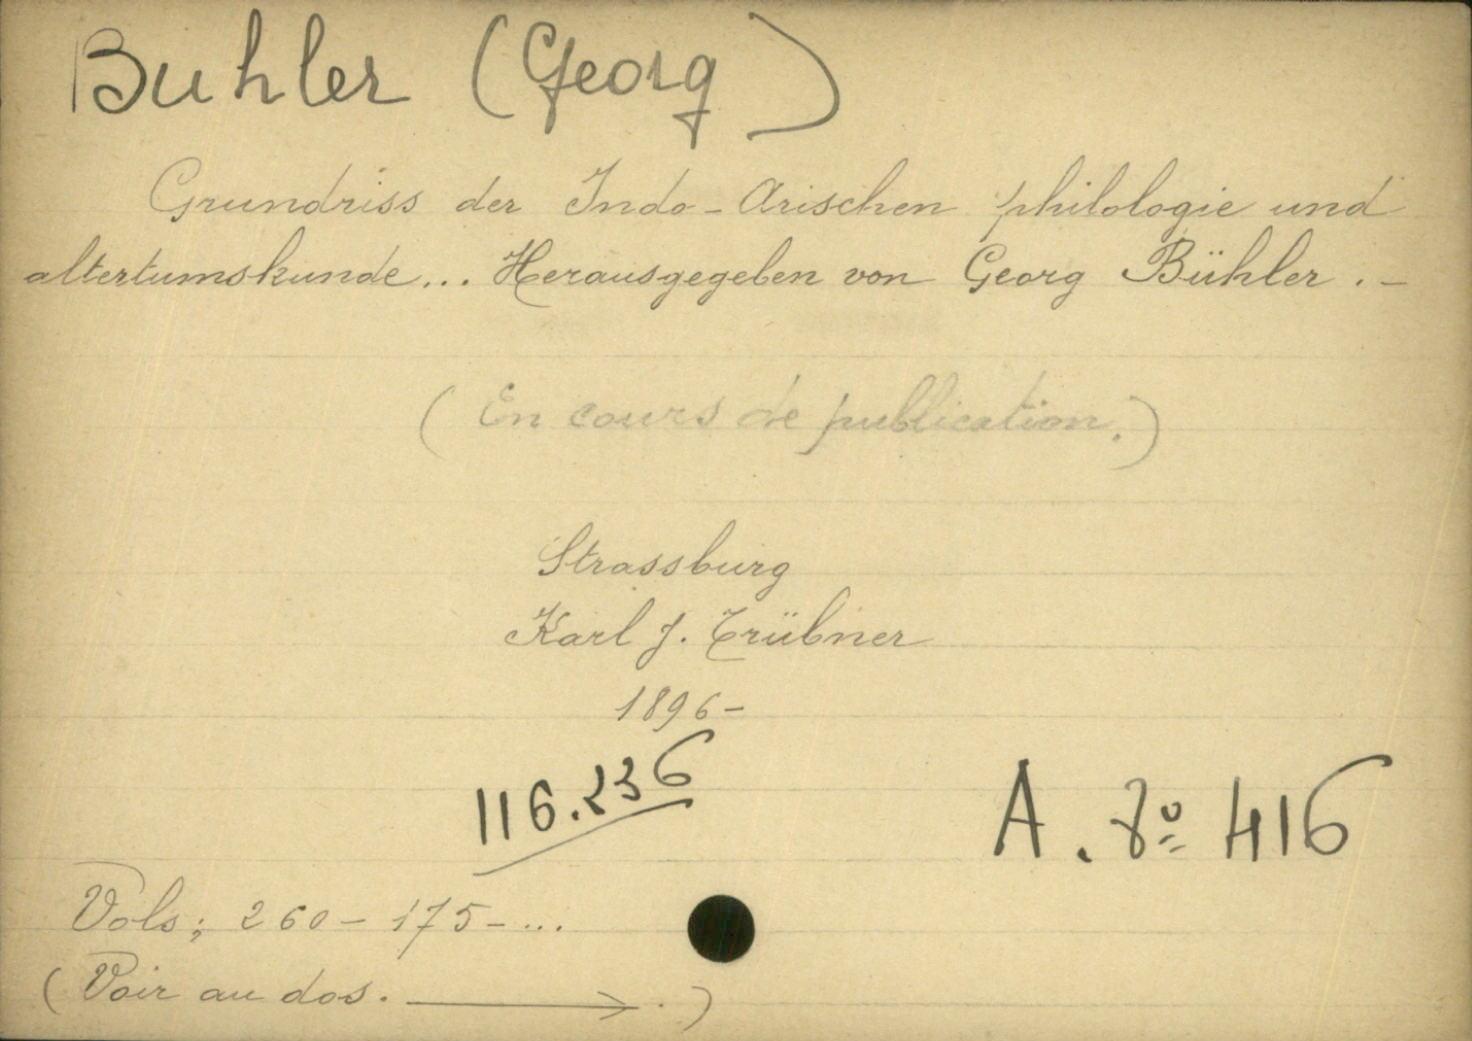 Buhler (Georg)
Grundriss der Indo-Arischen philologie und
altertumskunde... Herausgegeben von Georg Bühler . -
(En cours de publication.)
Strassburg
Karl J. Trübner
1896-
116.236
A. 8º 416
Vols; 260- 175- ...
(Voir au dos. ⟶ .)